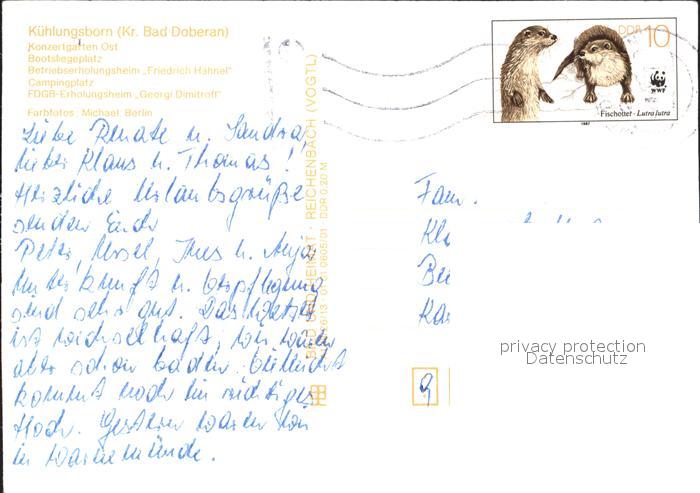 Kühlungsborn (Kr. Bad Doberan)
Konzertgarten Ost
Bootsliegeplatz
Betriebserholungsheim „Friedrich Hähnel“
Campingplatz
FDGB-Erholungsheim „Georgi Dimitroff“
Farbfotos: Michael, Berlin
Liebe Renate u. Sandra,
lieber Klaus u. Thomas!
Herzliche Urlaubsgrüße
senden Euch
Peter, Ursel, Ines u. Anja
Unterkunft u. Verpflegung
sind sehr gut. Das Wetter
ist wechselhaft, wir waren
aber schon baden. Vielleicht
kommt noch ein richtiges
Hoch. Gestern waren wir
in Warnemünde.
BILD UND HEIMAT · REICHENBACH (VOGTL)
DDR 0,20 M
DDR 10
WWF
Fischotter · Lutra lutra
1987
Fam.
Kl
Be
Ka
9
privacy protection
Datenschutz